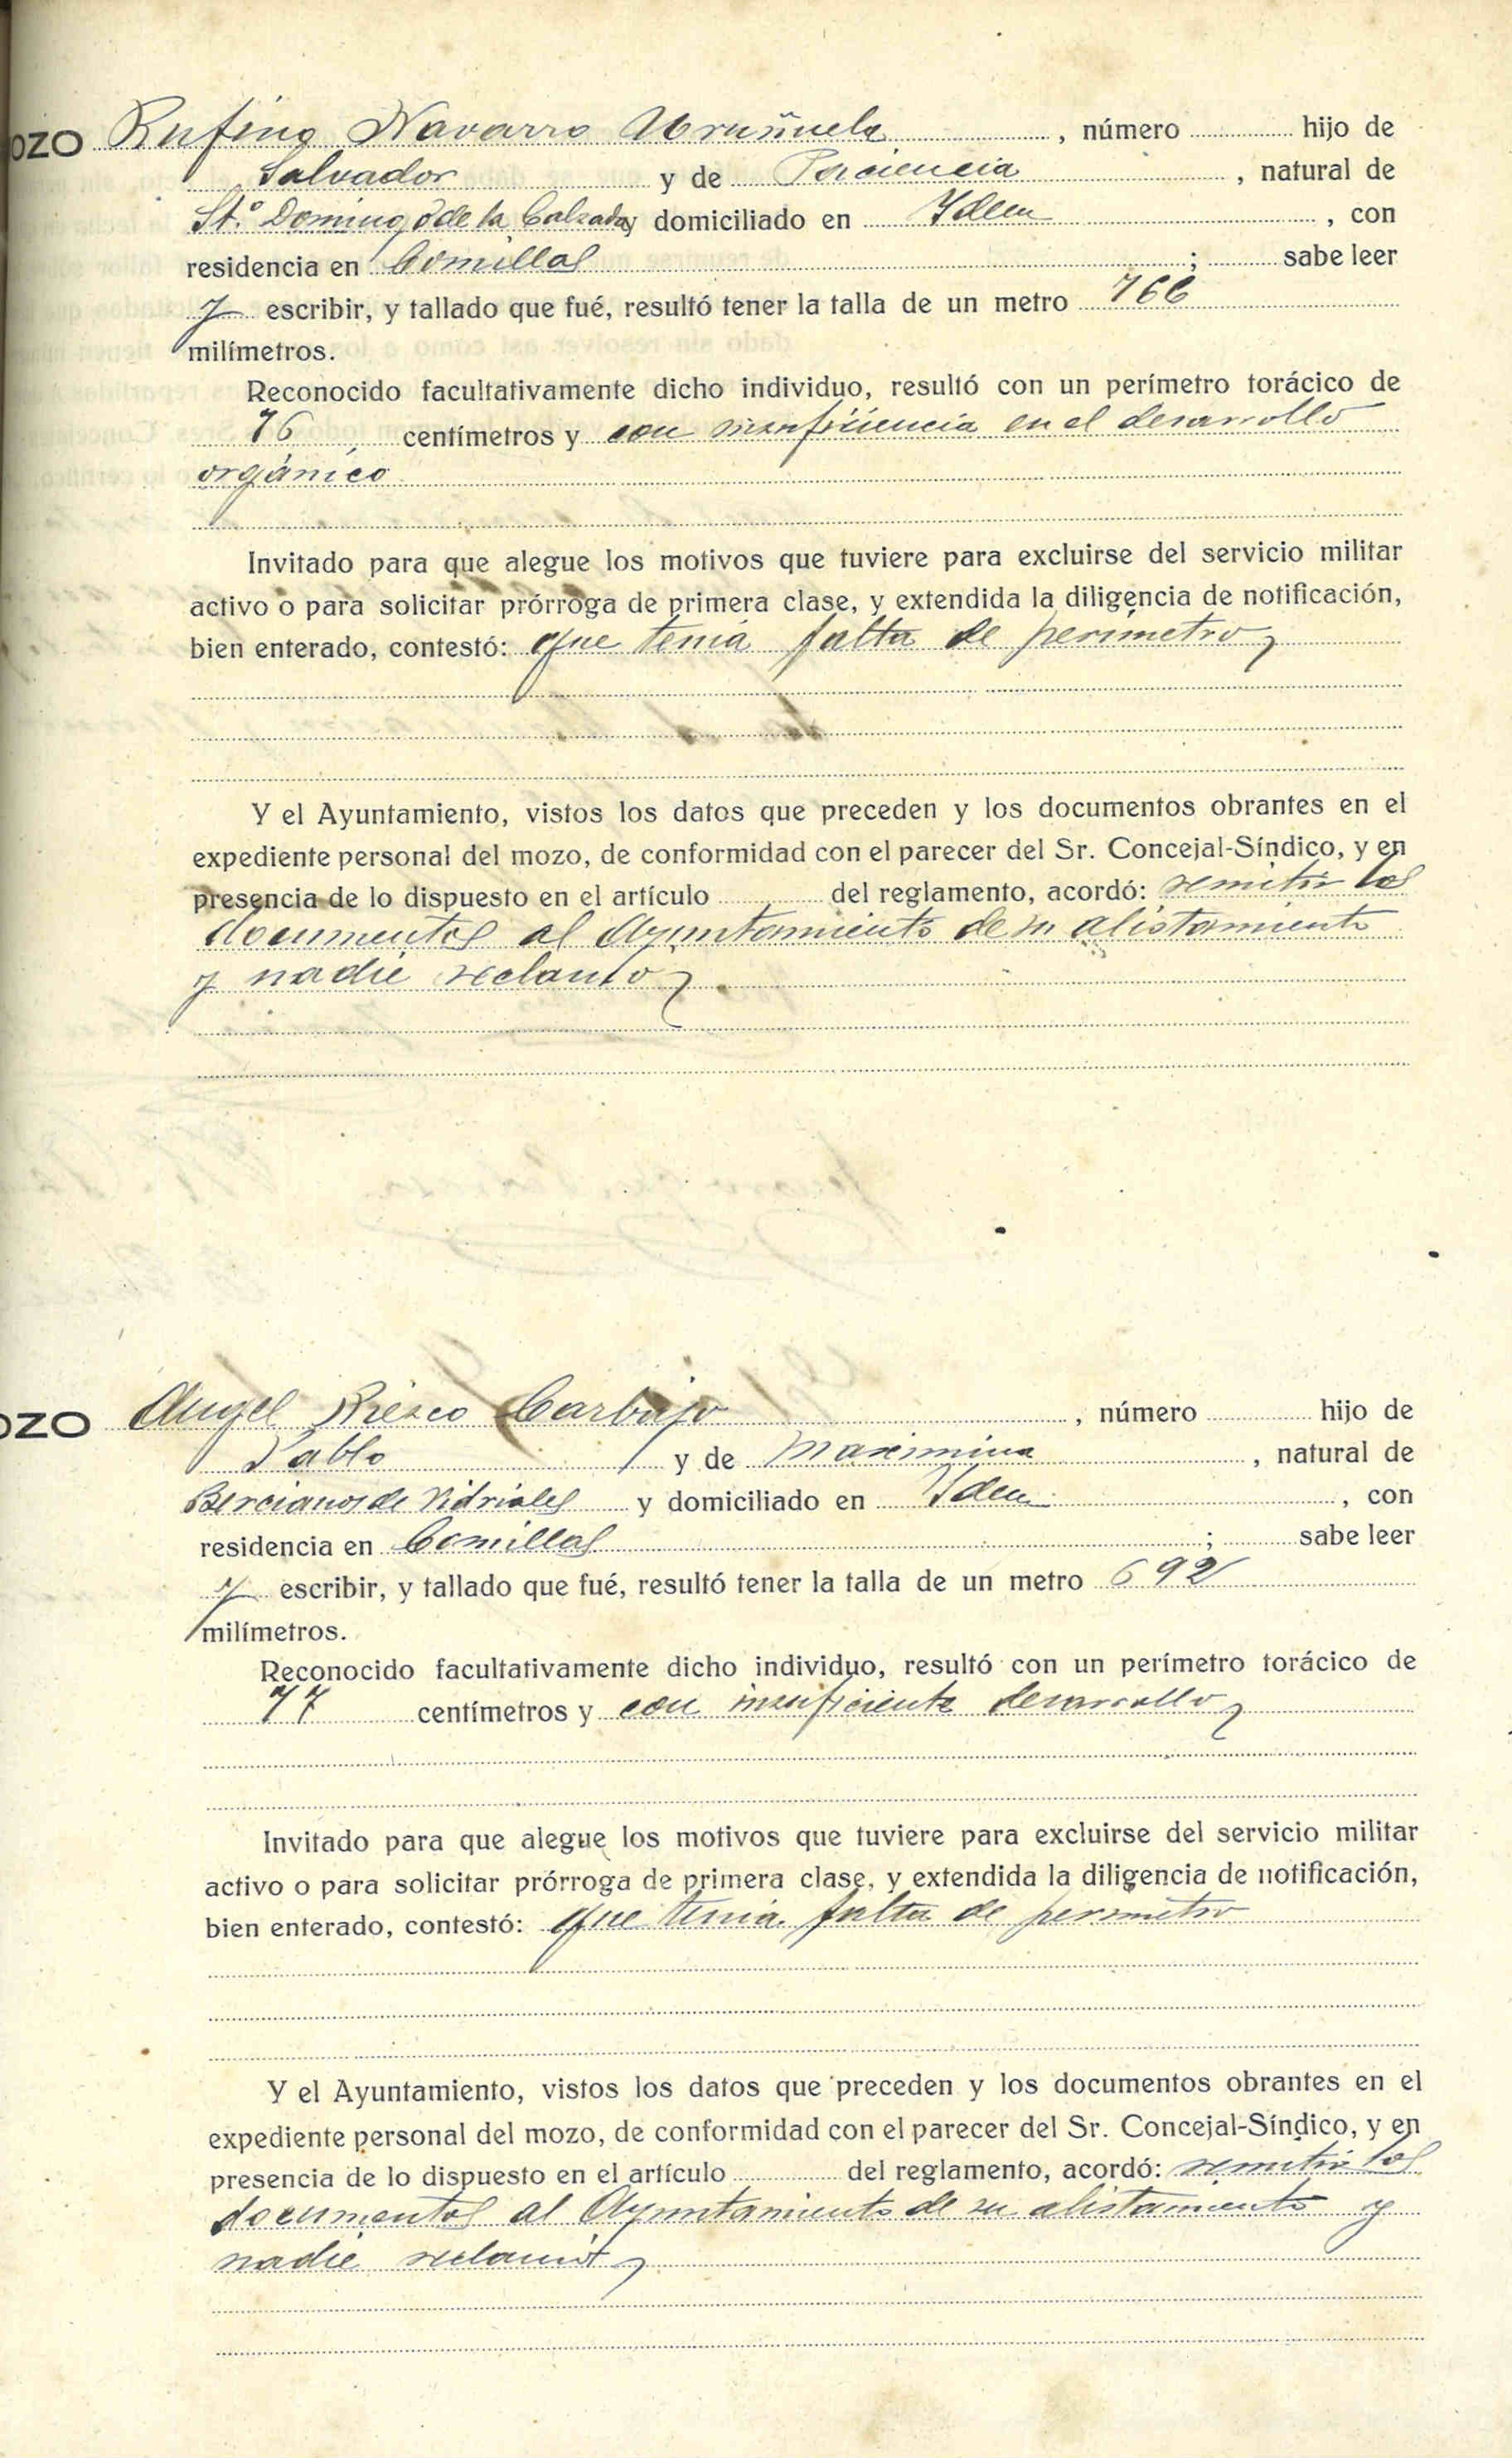 OZO Rufino Navarro Uruñuela, número hijo de
Salvador y de Paciencia, natural de
St.º Domingo de la Calzada y domiciliado en Idem, con
residencia en Comillas; sabe leer
y escribir, y tallado que fué, resultó tener la talla de un metro 766
milímetros.
Reconocido facultativamente dicho individuo, resultó con un perímetro torácico de
76 centímetros y con insuficiencia en el desarrollo
orgánico
Invitado para que alegue los motivos que tuviere para excluirse del servicio militar
activo o para solicitar prórroga de primera clase, y extendida la diligencia de notificación,
bien enterado, contestó: que tenía falta de perímetro
Y el Ayuntamiento, vistos los datos que preceden y los documentos obrantes en el
expediente personal del mozo, de conformidad con el parecer del Sr. Concejal-Síndico, y en
presencia de lo dispuesto en el artículo del reglamento, acordó: remitir los
documentos al Ayuntamiento de su alistamiento
y nadie reclamó
OZO Angel Riesco Carbajo, número hijo de
Pablo y de Maximina, natural de
Bercianos de Vidriales y domiciliado en Idem, con
residencia en Comillas; sabe leer
y escribir, y tallado que fué, resultó tener la talla de un metro 692
milímetros.
Reconocido facultativamente dicho individuo, resultó con un perímetro torácico de
77 centímetros y con insuficiente desarrollo
Invitado para que alegue los motivos que tuviere para excluirse del servicio militar
activo o para solicitar prórroga de primera clase, y extendida la diligencia de notificación,
bien enterado, contestó: que tenia falta de perimetro
Y el Ayuntamiento, vistos los datos que preceden y los documentos obrantes en el
expediente personal del mozo, de conformidad con el parecer del Sr. Concejal-Síndico, y en
presencia de lo dispuesto en el artículo del reglamento, acordó: remitir los
documentos al Ayuntamiento de su alistamiento y
nadie reclamó